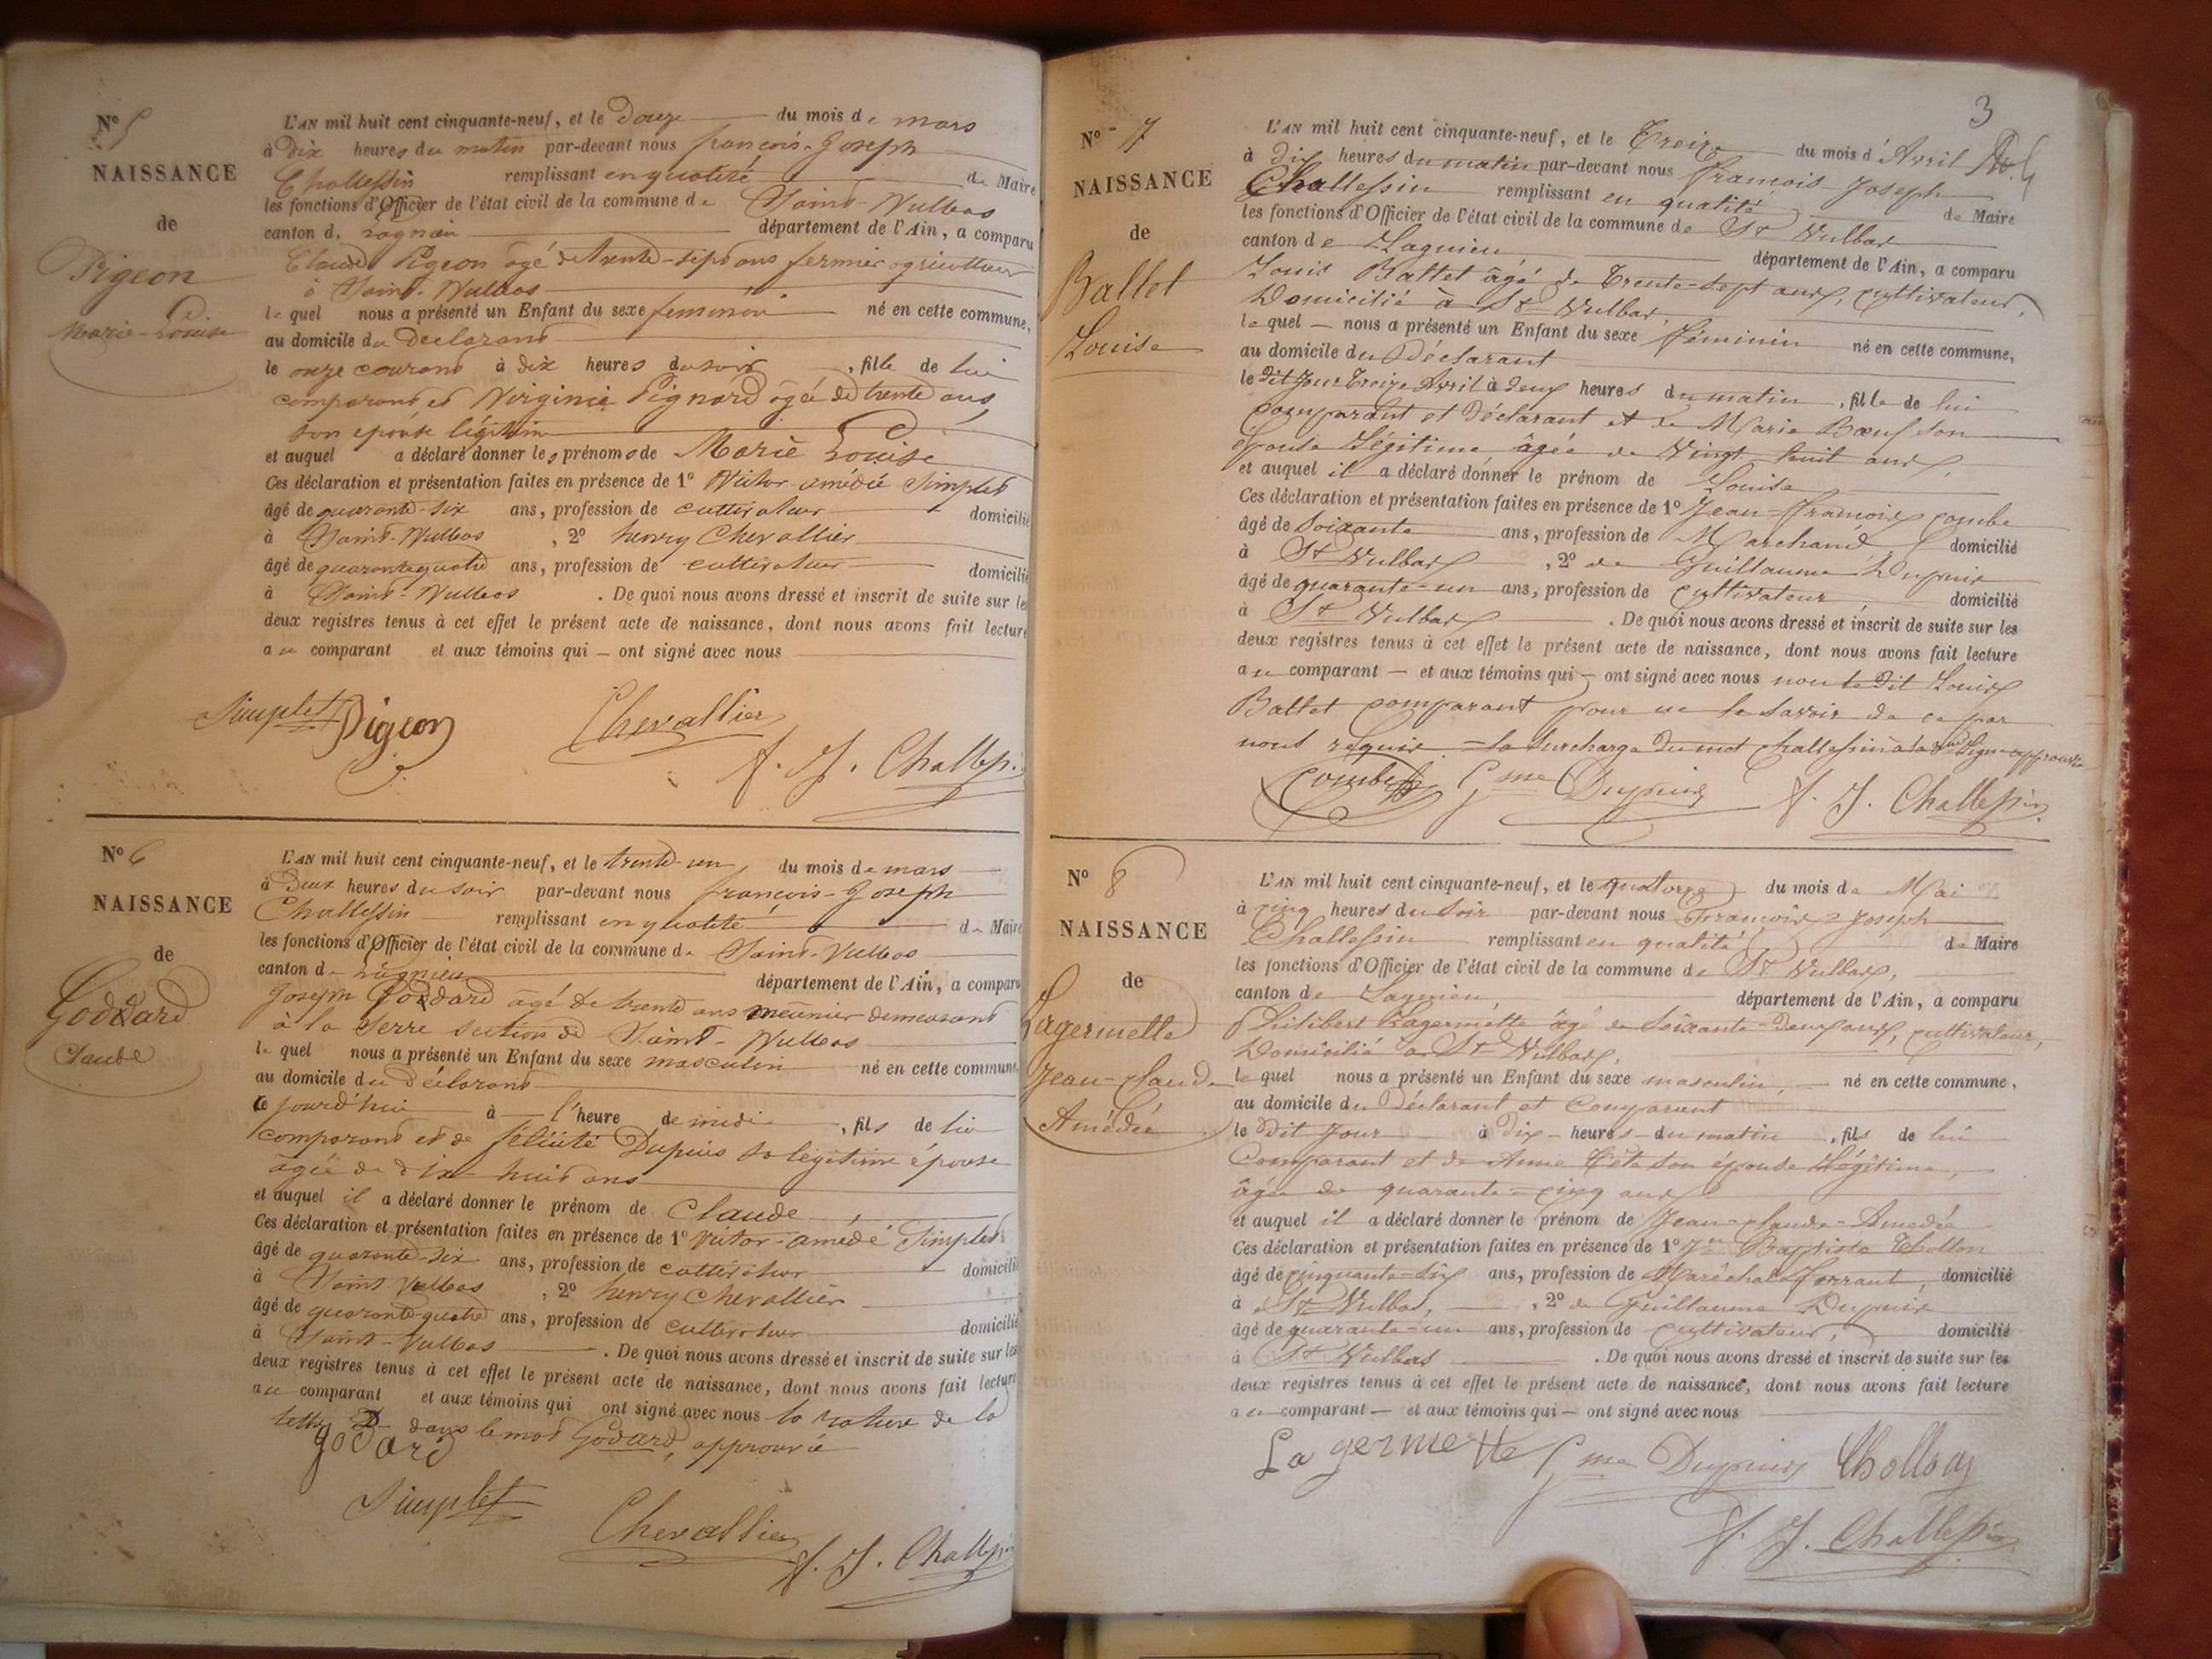 N° 5
NAISSANCE
de
Pigeon
Marie-Louise
L'AN mil huit cent cinquante-neuf, et le Douze du mois de mars
à dix heures du matin par-devant nous françois-Joseph
Challessin remplissant en qualité de Maire
les fonctions d'Officier de l'état civil de la commune de Saint-Vulbas
canton de Lagnieu département de l'Ain, a comparu
Claude Pigeon âgé de trente-sept ans fermier agriculteur
à Saint-Vulbas
lequel nous a présenté un Enfant du sexe feminin né en cette commune,
au domicile du Declarant
le onze courant à dix heures du soir, fille de lui
comparant et Virginie Pignard âgée de trente ans,
son épouse légitime
et auquel a déclaré donner les prénoms de Marie Louise
Ces déclaration et présentation faites en présence de 1° Victor-amédée Simplet
âgé de quarante-six ans, profession de cultivateur domicilié
à Saint-Vulbas, 2° henry Chevallier
âgé de quarante quatre ans, profession de cultivateur domicilié
à Saint-Vulbas. De quoi nous avons dressé et inscrit de suite sur les
deux registres tenus à cet effet le présent acte de naissance, dont nous avons fait lecture
au comparant et aux témoins qui ont signé avec nous
Simplet Pigeon Chevallier
f. J. Challessin
N° 6
NAISSANCE
de
Goddard
Claude
L'AN mil huit cent cinquante-neuf, et le trente-un du mois de mars
à Deux heures du soir par-devant nous françois-Joseph
Challessin remplissant en qualité de Maire
les fonctions d'Officier de l'état civil de la commune de Saint-Vulbas
canton de Lagnieu département de l'Ain, a comparu
Joseph Goddard âgé de trente ans meûnier demeurant
à la Serre section de Saint-Vulbas
lequel nous a présenté un Enfant du sexe masculin né en cette commune,
au domicile du Déclarant
ce jourd'hui à l'heure de midi, fils de lui
comparant et de félicité Dupuis sa légitime épouse
âgée de dix-huit ans
et auquel il a déclaré donner le prénom de Claude
Ces déclaration et présentation faites en présence de 1° Victor-amédé Simplet
âgé de quarante-six ans, profession de cultivateur domicilié
à Saint-Vulbas, 2° henry Chevallier
âgé de quarante-quatre ans, profession de cultivateur domicilié
à Saint-Vulbas. De quoi nous avons dressé et inscrit de suite sur les
deux registres tenus à cet effet le présent acte de naissance, dont nous avons fait lecture
au comparant et aux témoins qui ont signé avec nous la rature de la
lettre D dans le mot Godard, approuvée
godard
Simplet
Chevallier f. J. Challessin
3
N° 7
NAISSANCE
de
Ballet
Louise
L'AN mil huit cent cinquante-neuf, et le Treize du mois d'Avril
à dix heures du matin par-devant nous François-Joseph
Challessin remplissant en qualité de Maire
les fonctions d'Officier de l'état civil de la commune de St Vulbas
canton de Lagnieu, département de l'Ain, a comparu
Louis Ballet âgé de Trente-Sept ans, cultivateur,
Domicilié à St Vulbas,
lequel nous a présenté un Enfant du sexe féminin né en cette commune,
au domicile du Déclarant
le dit jour treize Avril à deux heures du matin, fille de lui
comparant et Déclarant et de Marie Bœuf son
épouse Légitime âgée de Vingt-huit ans,
et auquel il a déclaré donner le prénom de Louise
Ces déclaration et présentation faites en présence de 1° Jean-François Combe
âgé de Soixante ans, profession de Marchand, domicilié
à St Vulbas, 2° de Guillaume Dupuis
âgé de quarante-un ans, profession de cultivateur, domicilié
à St Vulbas. De quoi nous avons dressé et inscrit de suite sur les
deux registres tenus à cet effet le présent acte de naissance, dont nous avons fait lecture
au comparant et aux témoins qui ont signé avec nous non le dit Louis
Ballet comparant pour ne le savoir de ce par
nous requis = la surcharge du mot Challessin à la ligne approuvée
Combe Gme Dupuis f. J. Challessin
N° 8
NAISSANCE
de
Lagermette
Jean-Claude
Amédée
L'AN mil huit cent cinquante-neuf, et le quatorze du mois de Mai
à cinq heures du Soir par-devant nous François Joseph
Challessin remplissant en qualité de Maire
les fonctions d'Officier de l'état civil de la commune de St Vulbas,
canton de Lagnieu, département de l'Ain, a comparu
Philibert Lagermette âgé de Soixante-Deux ans, cultivateur,
Domicilié à St Vulbas,
lequel nous a présenté un Enfant du sexe masculin, né en cette commune,
au domicile du Déclarant et Comparant
le dit Jour à Dix heures du matin, fils de lui
Comparant et de Anne Tête son épouse Légitime,
âgée de quarante-cinq ans
et auquel il a déclaré donner le prénom de Jean-Claude-Amédée
Ces déclaration et présentation faites en présence de 1° Jean Baptiste Thollon
âgé de cinquante-six ans, profession de Maréchal-ferrant, domicilié
à St Vulbas, 2° de Guillaume Dupuis
âgé de quarante-un ans, profession de cultivateur, domicilié
à St Vulbas. De quoi nous avons dressé et inscrit de suite sur les
deux registres tenus à cet effet le présent acte de naissance, dont nous avons fait lecture
au comparant et aux témoins qui ont signé avec nous
La germette Gme Dupuis Thollon
f. J. Challessin